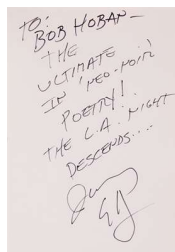 TO:
BOB HOBAN—
THE
ULTIMATE
IN 'NEO-NOIR'
POETRY!
THE L.A. NIGHT
DESCENDS....